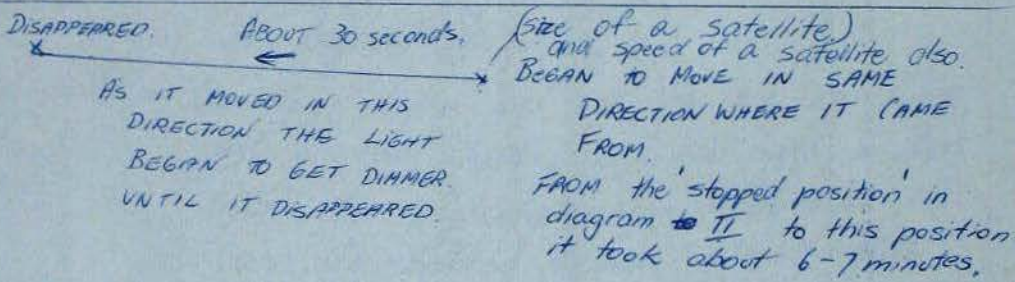 DISAPPEARED.
ABOUT 30 seconds.
AS IT MOVED IN THIS
DIRECTION THE LIGHT
BEGAN TO GET DIMMER.
UNTIL IT DISAPPEARED.
(size of a satellite)
and speed of a satellite also.
BEGAN TO MOVE IN SAME
DIRECTION WHERE IT CAME
FROM.
FROM the 'stopped position' in
diagram II to this position
it took about 6-7 minutes.